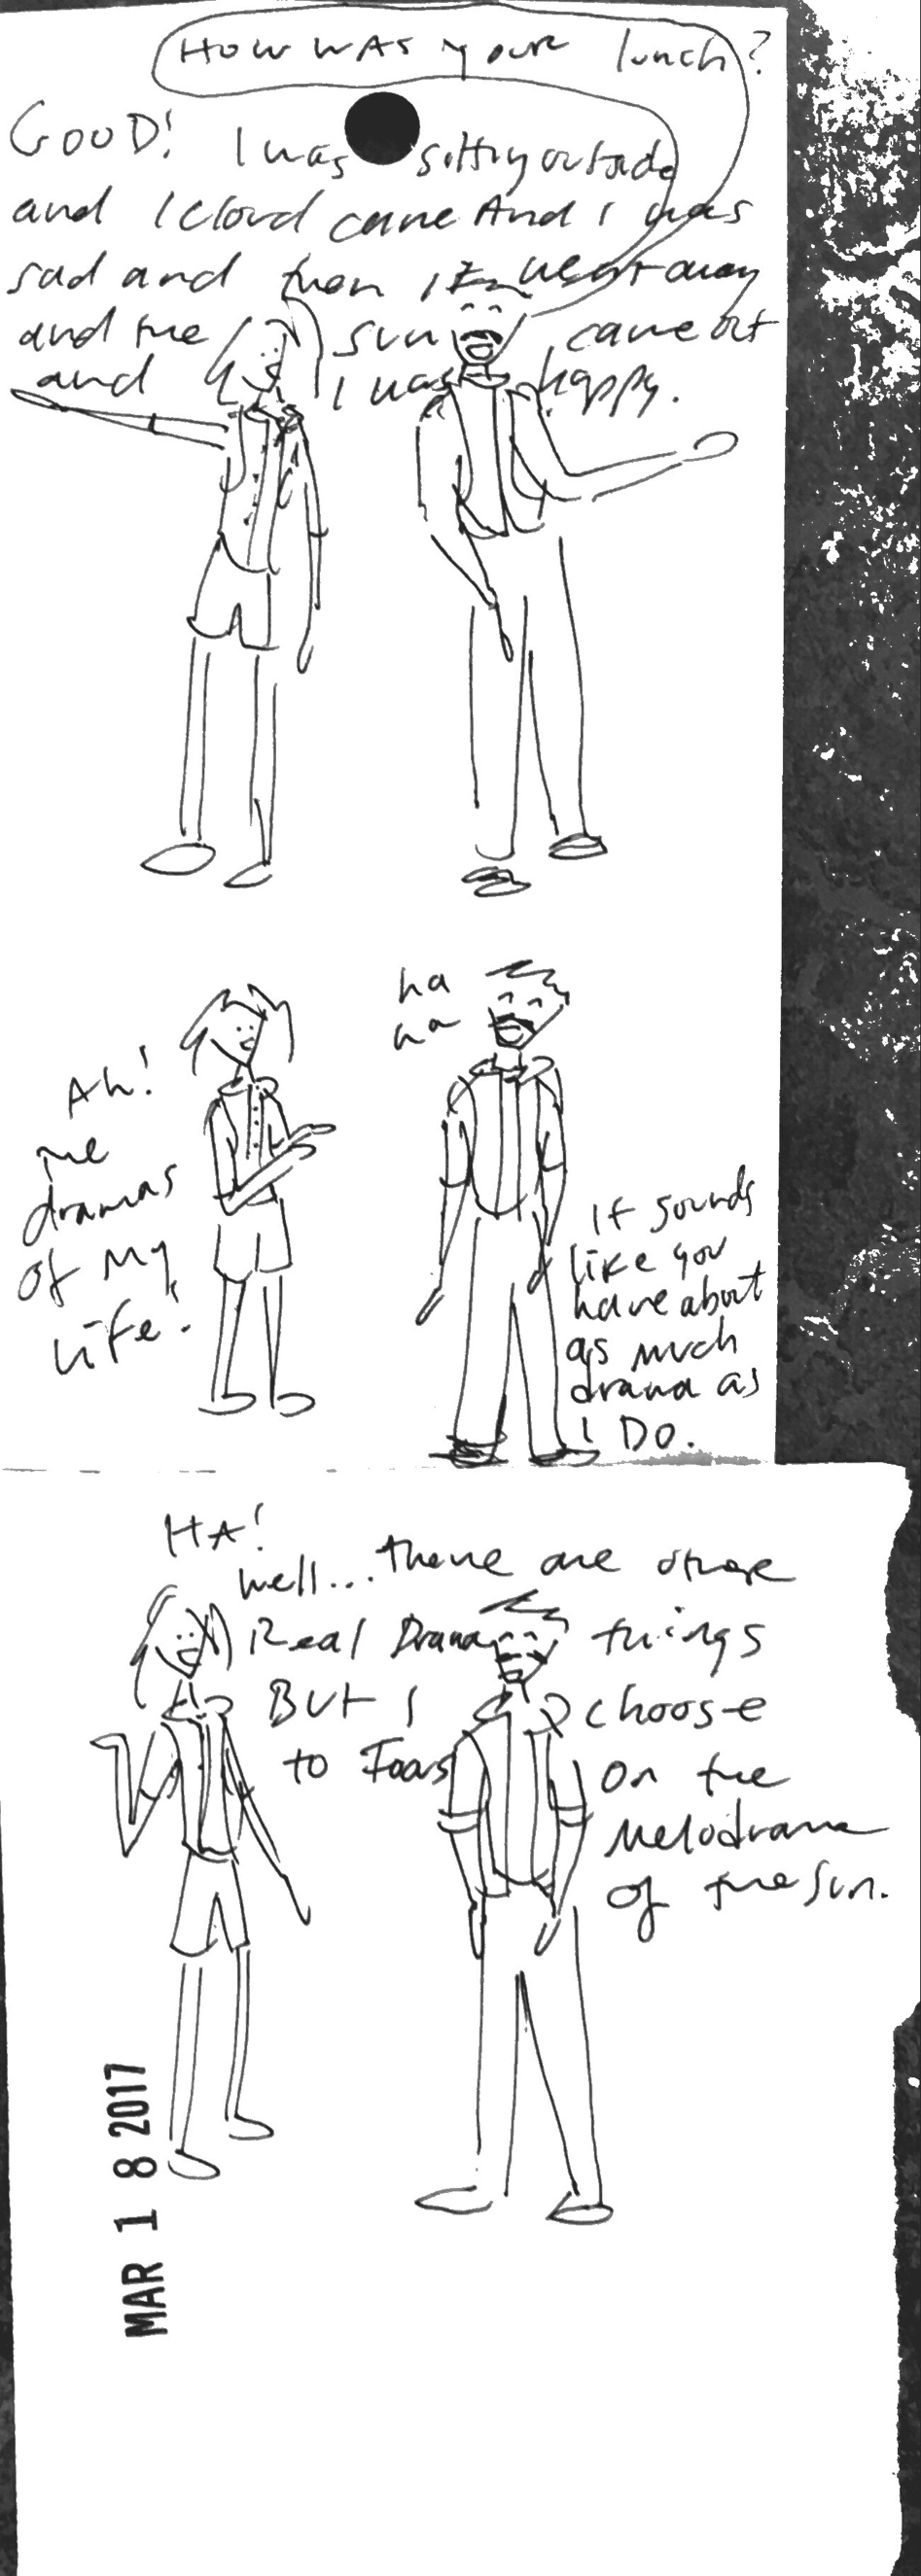 HOW WAS your lunch?
GOOD! I was sitting outside
and 1 cloud came And I was
sad and then it went away
and the sun came out
and I was happy.
ha
ha
Ah!
the
dramas
of my
life!
It sounds
like you
have about
as much
drama as
I DO.
HA!
Well... there are other
Real Drama things
But I choose
to Focus on the
Melodrama
of the sun.
MAR 18 2017